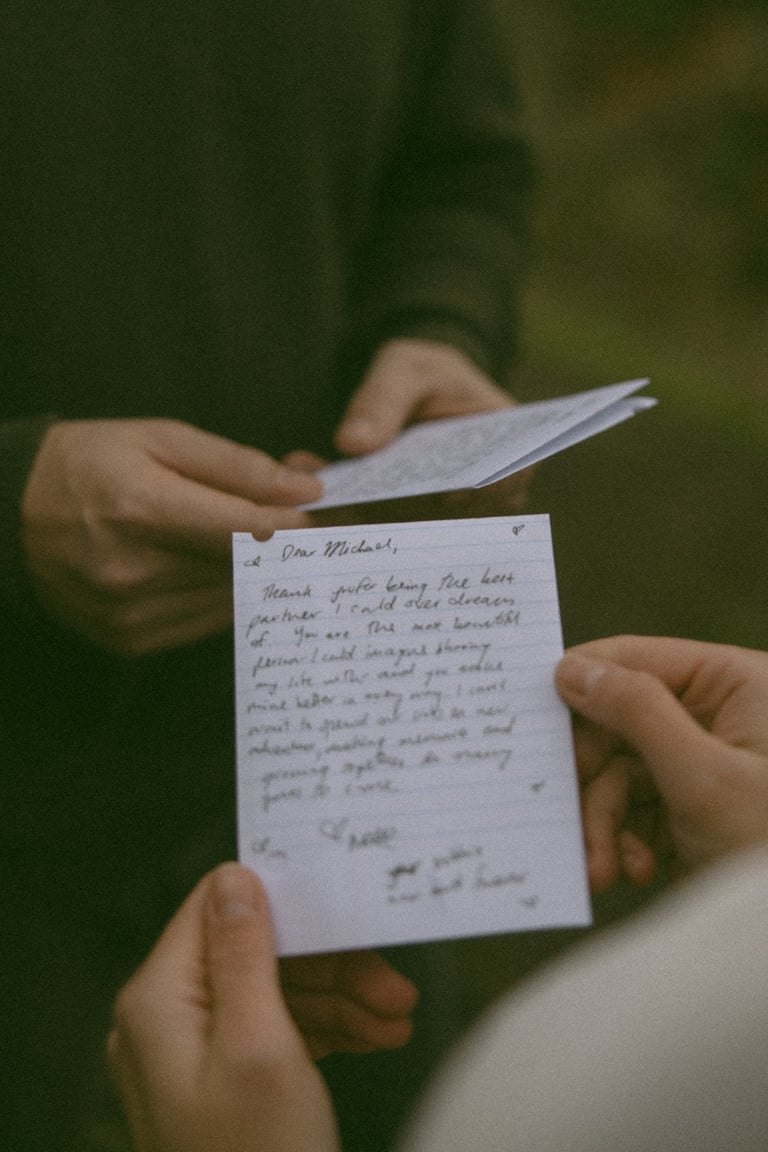 Dear Michael,
Thank you for being the best
partner I could ever dream
of. You are the most beautiful
person I could imagine sharing
my life with and you make
mine better in every way. I can't
wait to spend our lives in new
adventures, making memories and
growing together for many
years to come.